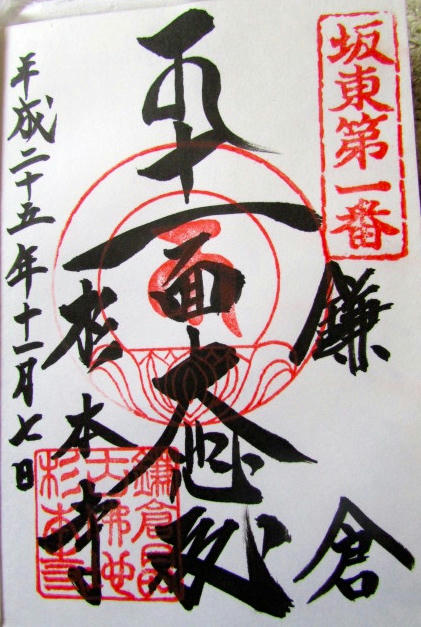 坂東第一番
鎌倉
十一面大悲殿
杉本寺
平成二十五年十一月七日
鎌倉
杉本寺